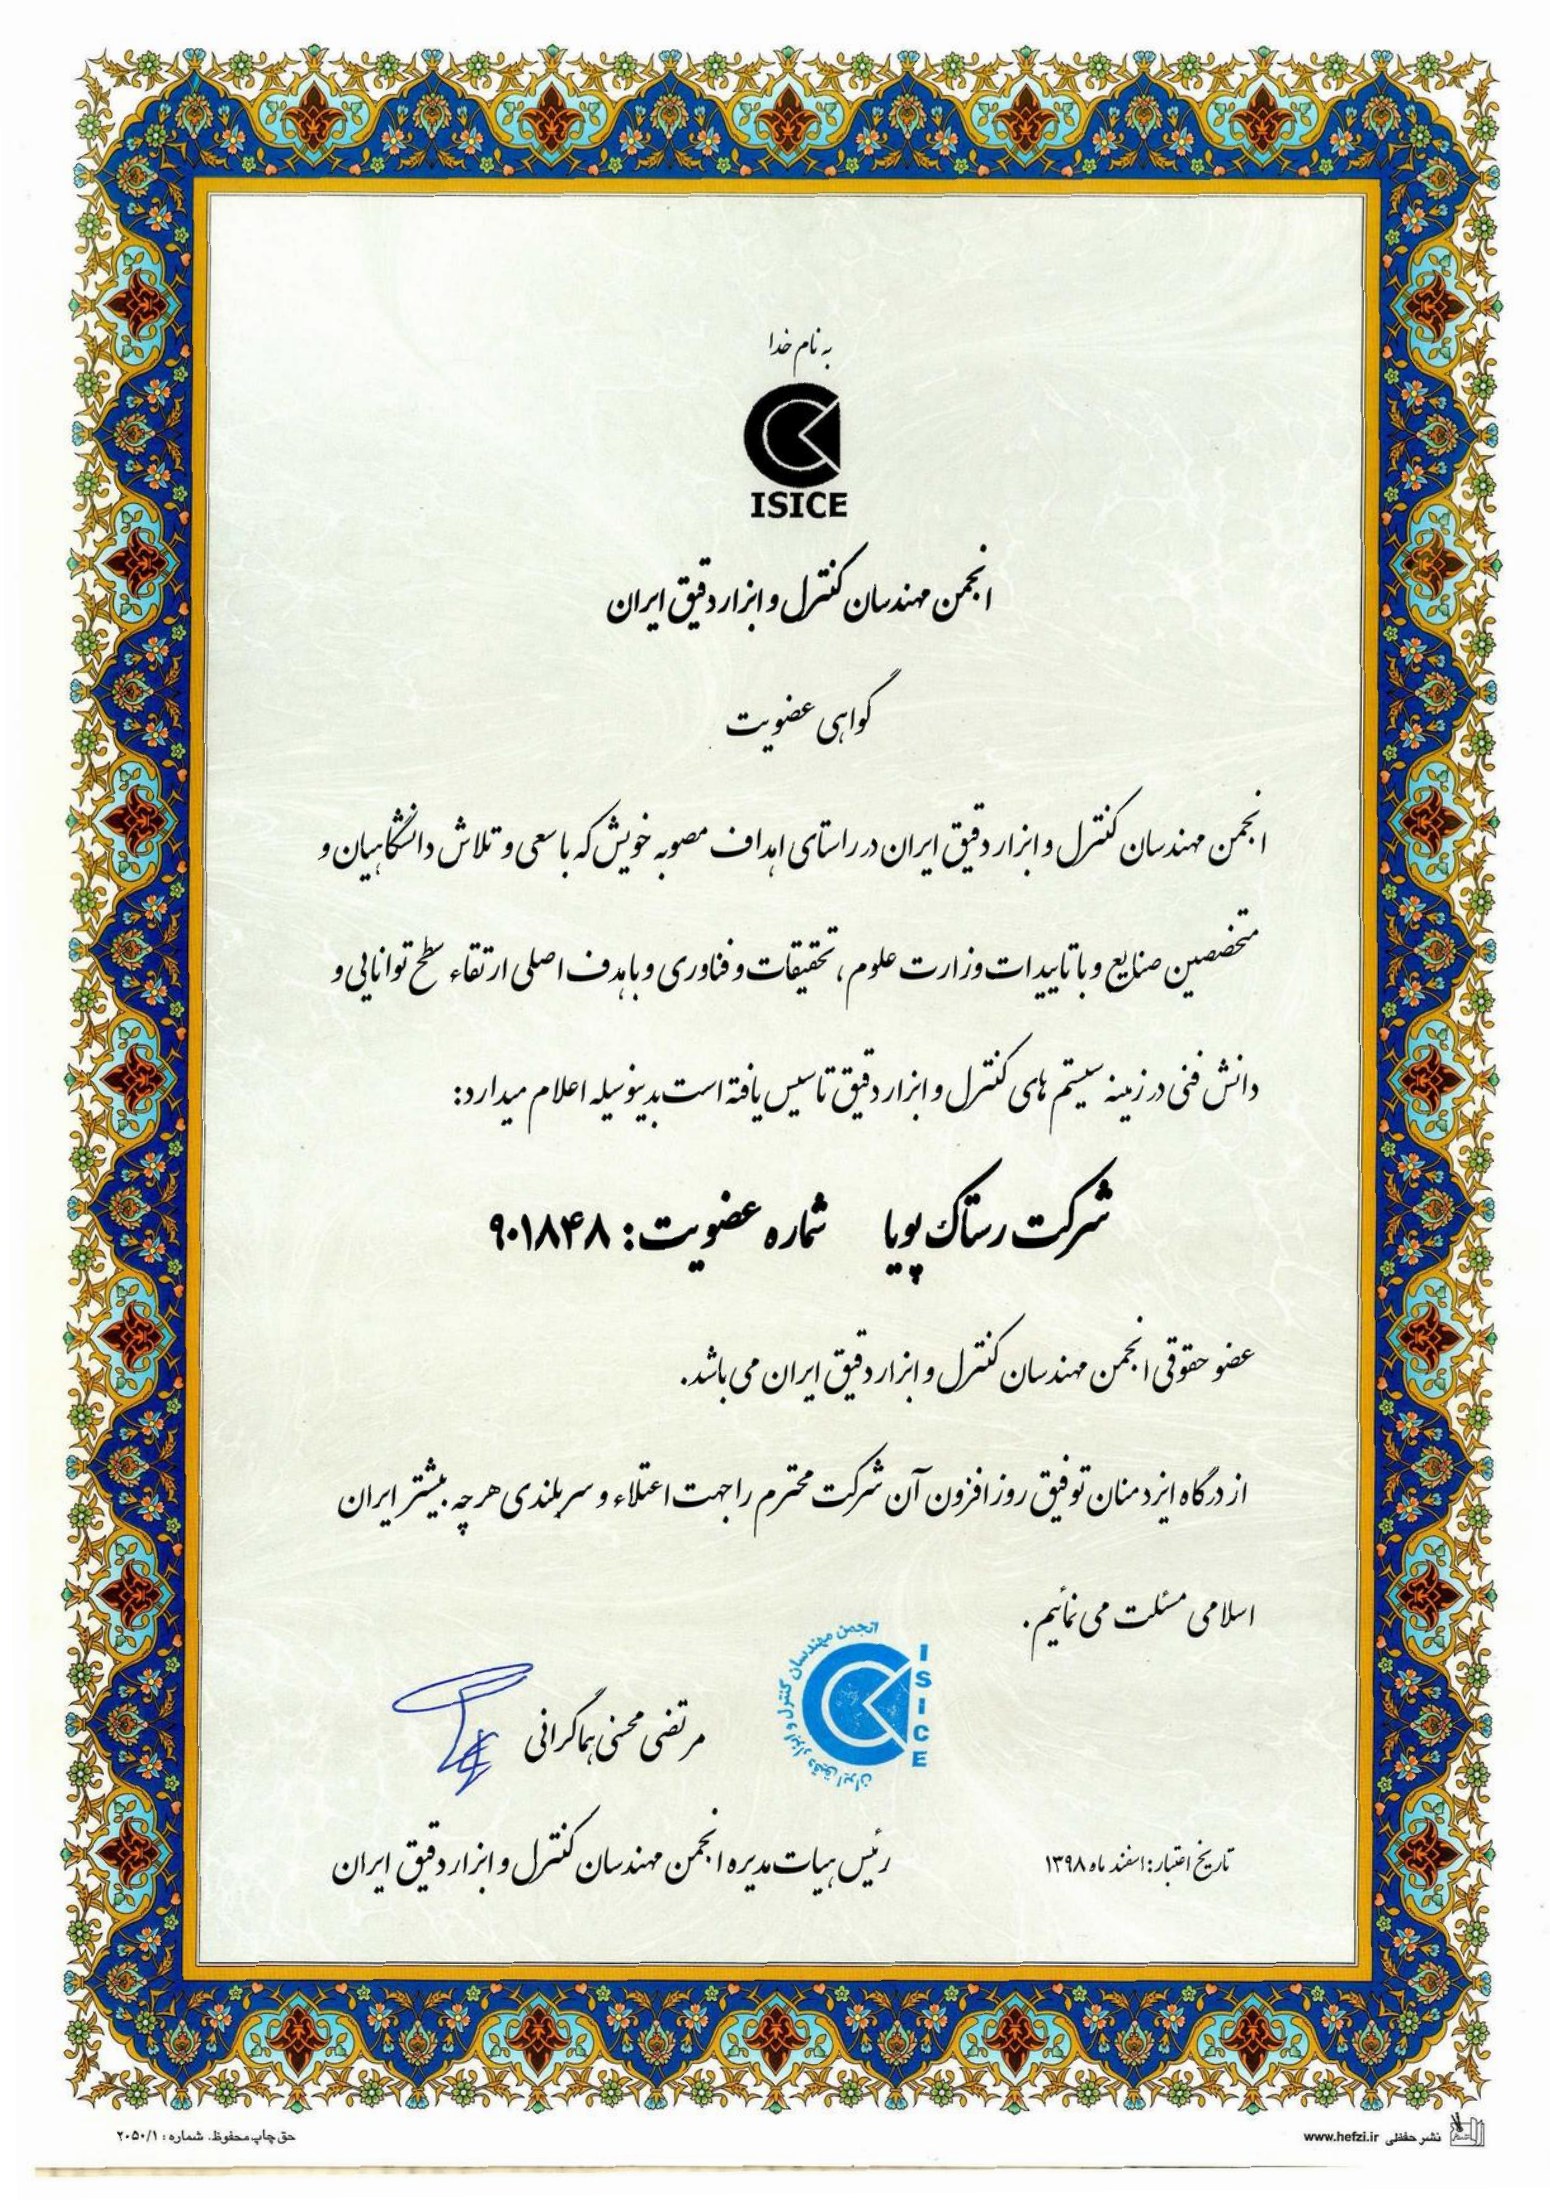 به نام خدا
ISICE
انجمن مهندسان کنترل و ابزار دقیق ایران
گواهی عضویت
انجمن مهندسان کنترل و ابزار دقیق ایران در راستای اهداف مصوبه خویش که با سعی و تلاش دانشگاهیان و
متخصصین صنایع و با تاییدات وزارت علوم، تحقیقات و فناوری و با هدف اصلی ارتقاء سطح توانایی و
دانش فنی در زمینه سیستم های کنترل و ابزار دقیق تاسیس یافته است بدینوسیله اعلام میدارد:
شرکت رستاک پویا شماره عضویت: ۹۰۱۸۴۸
عضو حقوقی انجمن مهندسان کنترل و ابزار دقیق ایران می باشد.
از درگاه ایزد منان توفیق روزافزون آن شرکت محترم را جهت اعتلاء و سربلندی هرچه بیشتر ایران
اسلامی مسئلت می نمائیم.
انجمن مهندسان کنترل و ابزار دقیق ایران
ISICE
مرتضی محسنی هماگرانی
رئیس هیات مدیره انجمن مهندسان کنترل و ابزار دقیق ایران
تاریخ اعتبار: اسفند ماه ۱۳۹۸
نشر حفظی www.hefzi.ir
حق چاپ محفوظ. شماره: ۲۰۵۰/۱